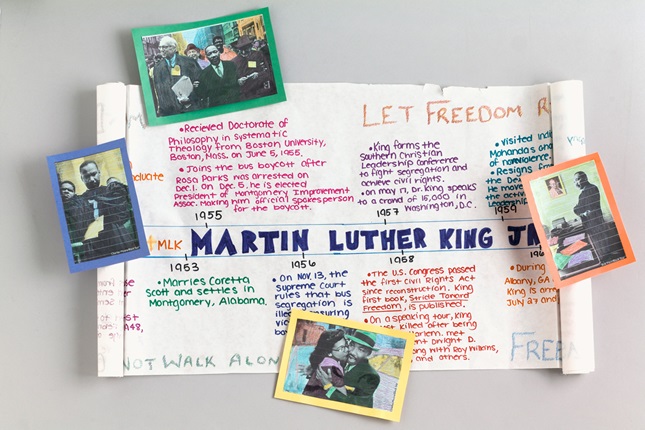 LET FREEDOM
•Recieved Doctorate of
Philosophy in Systematic
Theology from Boston University,
Boston, Mass. on June 5, 1955.
•Joins the bus boycott after
Rosa Parks was arrested on
Dec.1. on Dec. 5, he is elected
President of Montgomery Improvement
Assoc. Making him official spokesperson
for the boycott.
1955
•King forms the
Southern Christian
Leadership conference
to fight segregation and
achieve civil rights.
•on may 17, Dr. King speaks
to a crowd of 15,000 in
Washington, D.C.
1957
•Visited
Mohandas
of nonviolence.
•Resigns
the
He move
the
Leadership
1959
MLK MARTIN LUTHER KING
1953
•Marries Coretta
Scott and settles in
Montgomery, Alabama.
1956
•On Nov. 13, the
Supreme Court
rules that bus
segregation is
1958
•The U.S. Congress passed
the first Civil Rights Act
since reconstruction. King
first book, Stride Toward
Freedom, is published.
•On a speaking tour, King
killed after being
met
Dwight D.
with Roy Wilkins,
and others.
•During
Albany, GA
King is
July 27 and
NOT WALK